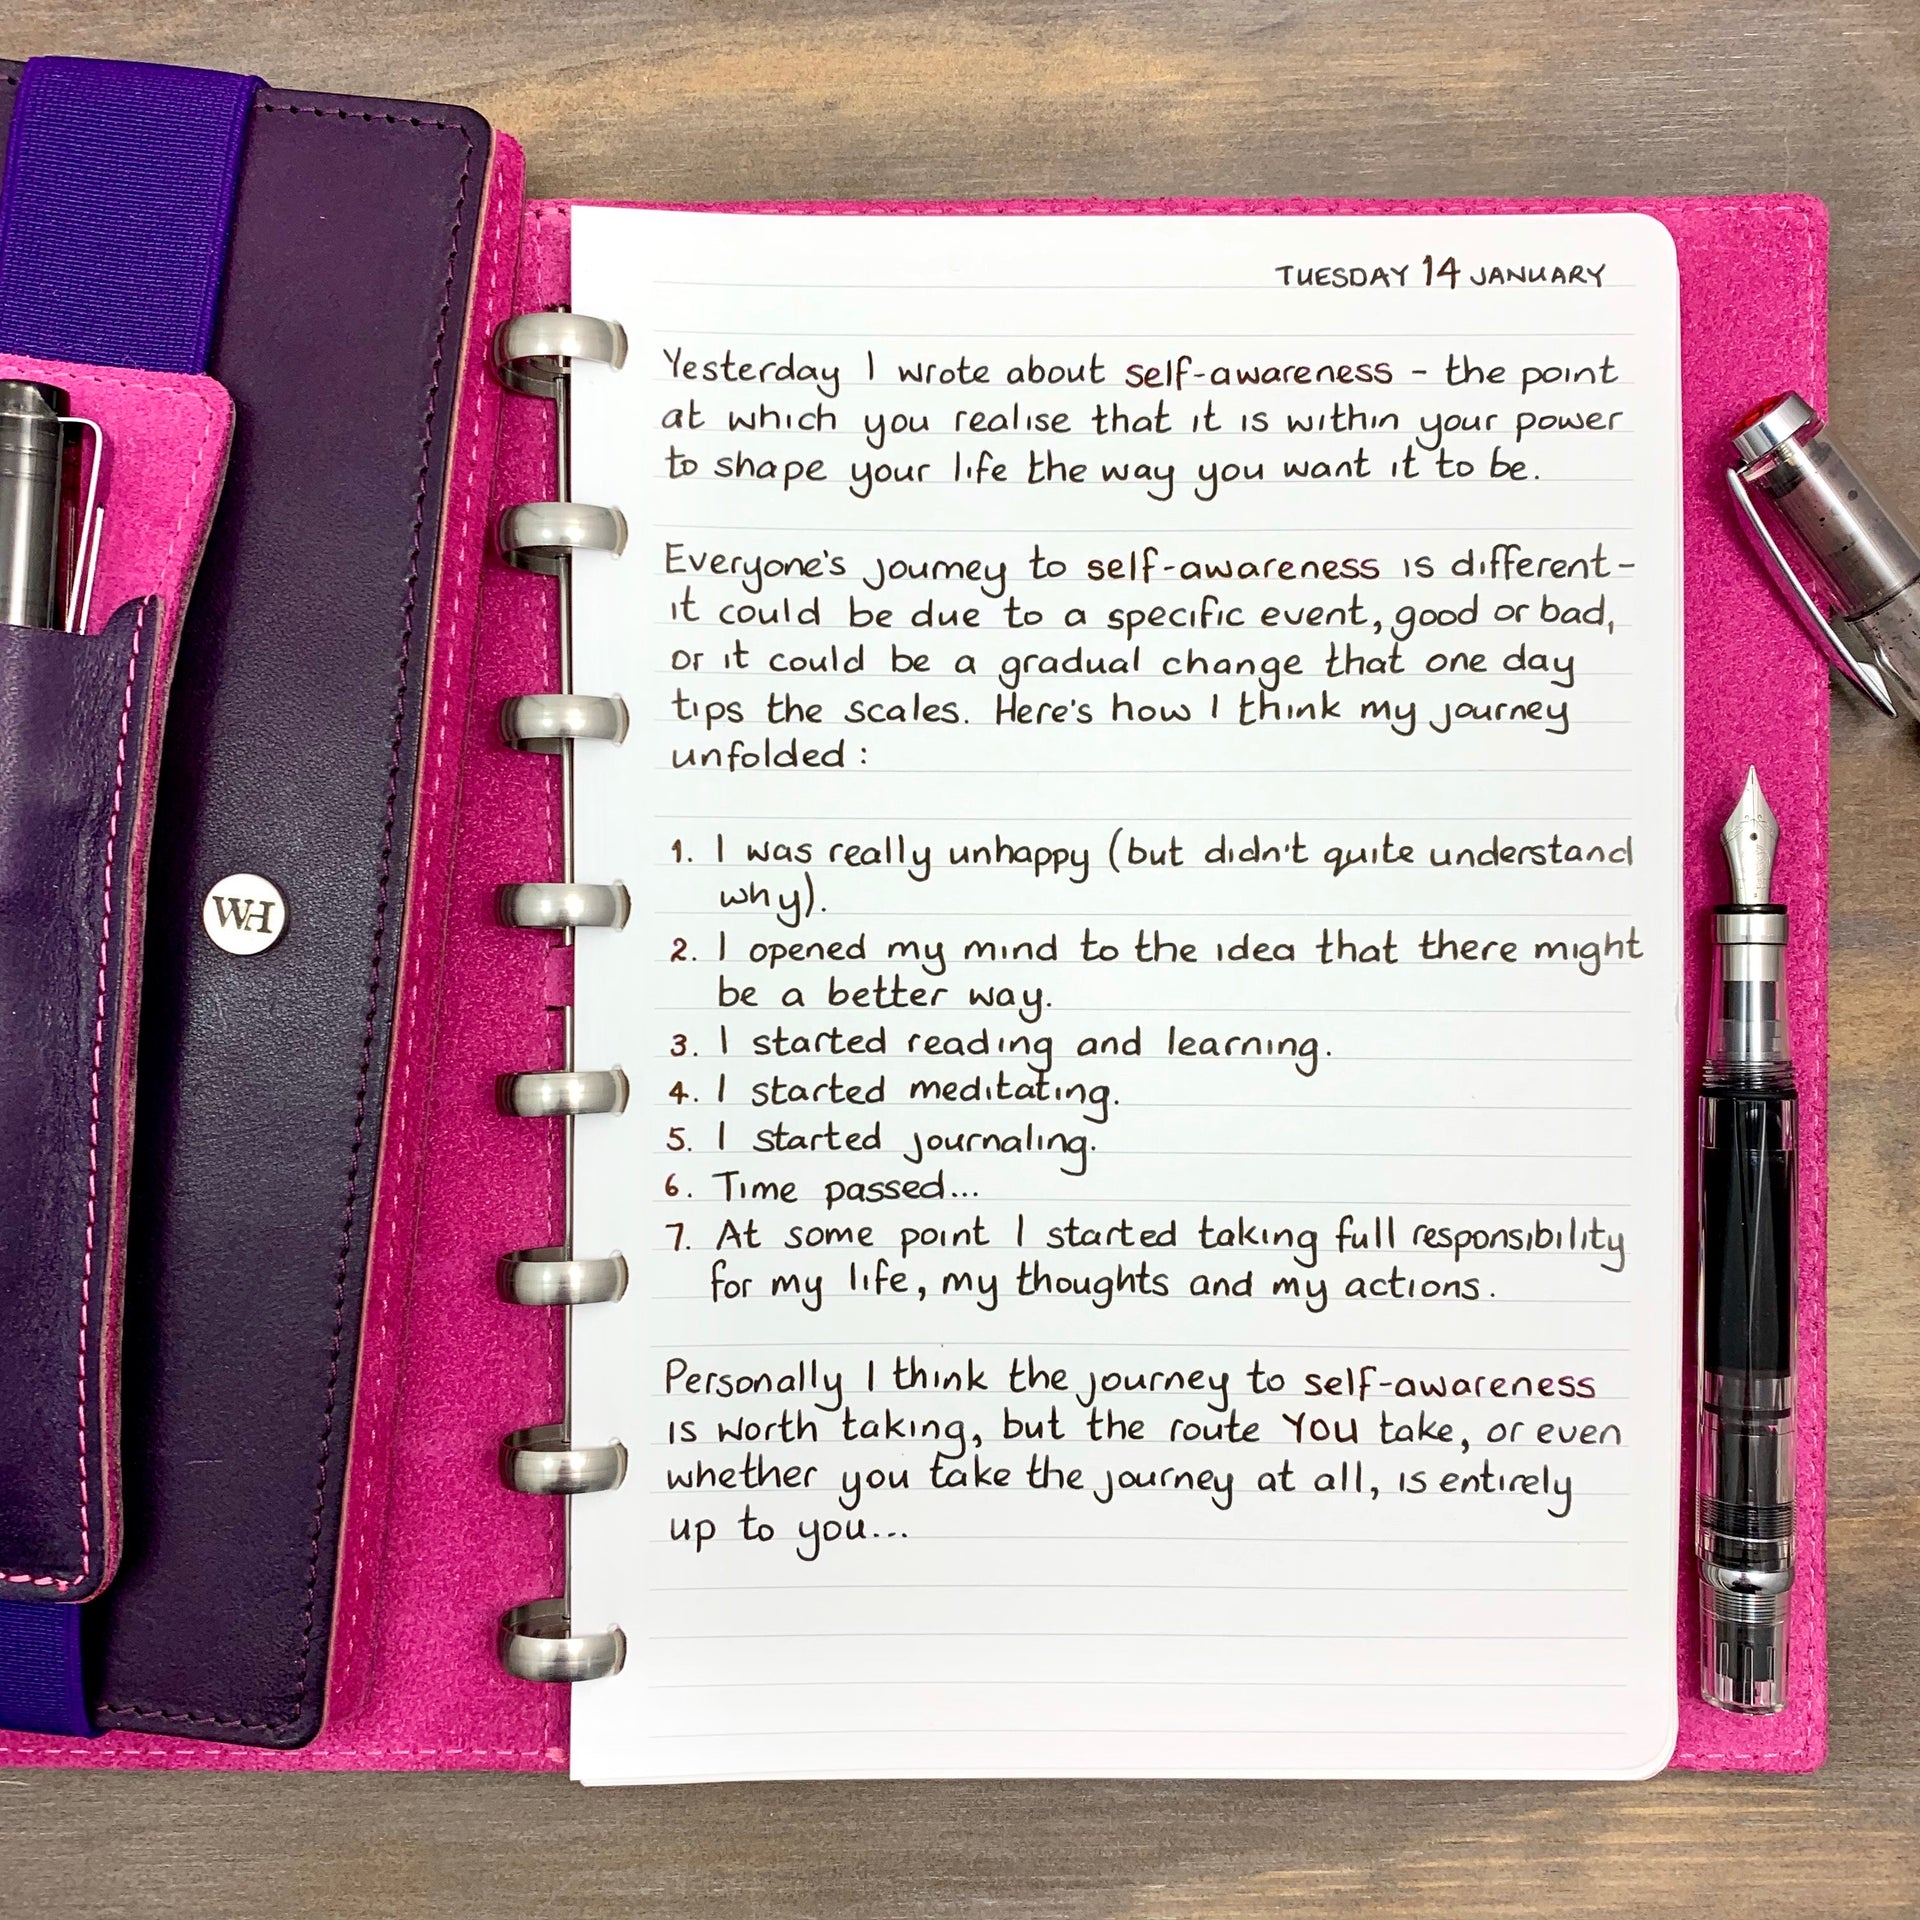 TUESDAY 14 JANUARY
Yesterday I wrote about self-awareness - the point
at which you realise that it is within your power
to shape your life the way you want it to be.
Everyone's journey to self-awareness is different -
it could be due to a specific event, good or bad,
or it could be a gradual change that one day
tips the scales. Here's how I think my journey
unfolded:
1. I was really unhappy (but didn't quite understand
why).
2. I opened my mind to the idea that there might
be a better way.
3. I started reading and learning.
4. I started meditating.
5. I started journaling.
6. Time passed...
7. At some point I started taking full responsibility
for my life, my thoughts and my actions.
Personally I think the journey to self-awareness
is worth taking, but the route YOU take, or even
whether you take the journey at all, is entirely
up to you...
WH